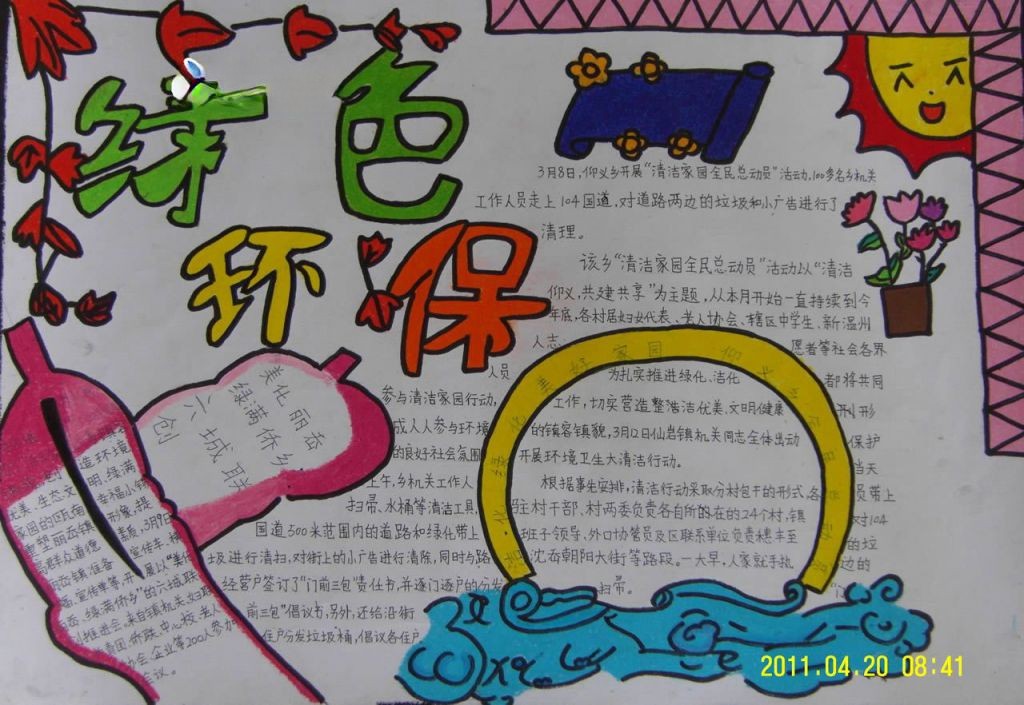 绿色
环保
3月8日,仰义乡开展“清洁家园全民总动员”活动,100多名乡机关
工作人员走上104国道,对道路两边的垃圾和小广告进行了
清理。
该乡“清洁家园全民总动员”活动以“清洁
仰义,共建共享”为主题,从本月开始一直持续到今
年底,各村居妇女代表、老人协会、辖区中学生、新温州
人志愿者等社会各界
人员都将共同
参与清洁家园行动,
成人人参与环境保护
的良好社会氛围
上午,乡机关工作人员带上
扫帚、水桶等清洁工具,对104
国道500米范围内的道路和绿化带上的垃
圾进行清扫,对街上的小广告进行清除,同时与路边的
经营户签订了“门前三包”责任书,并逐门逐户的分发
前三包”倡议书,另外,还给沿街
住户分发垃圾桶,倡议各住户
为扎实推进绿化、洁化
工作,切实营造整洁优美、文明健康
的镇容镇貌,3月12日仙岩镇机关同志全体出动
开展环境卫生大清洁行动。
根据事先安排,清洁行动采取分村包干的形式,各
驻村干部、村两委负责各自所的在的24个村,镇
班子领导,外口协管员及区联系单位负责穗丰至
沈岙朝阳大街等路段。一大早,人家就手执
扫帚。
美化丽岙
绿满侨乡
六城联
创
造环境
优美、生态文明、绿满
家园的瓯
重塑丽岙镇形象,提
高群众道德素质,3月9日
丽岙镇准备
宣传单等,开展以“美化
岙、绿满侨乡”的六城联
创推进会,来自镇机关、妇联
团、侨联、中心校、老人
协会、企业等200人参加
会议。
2011.04.20 08:41